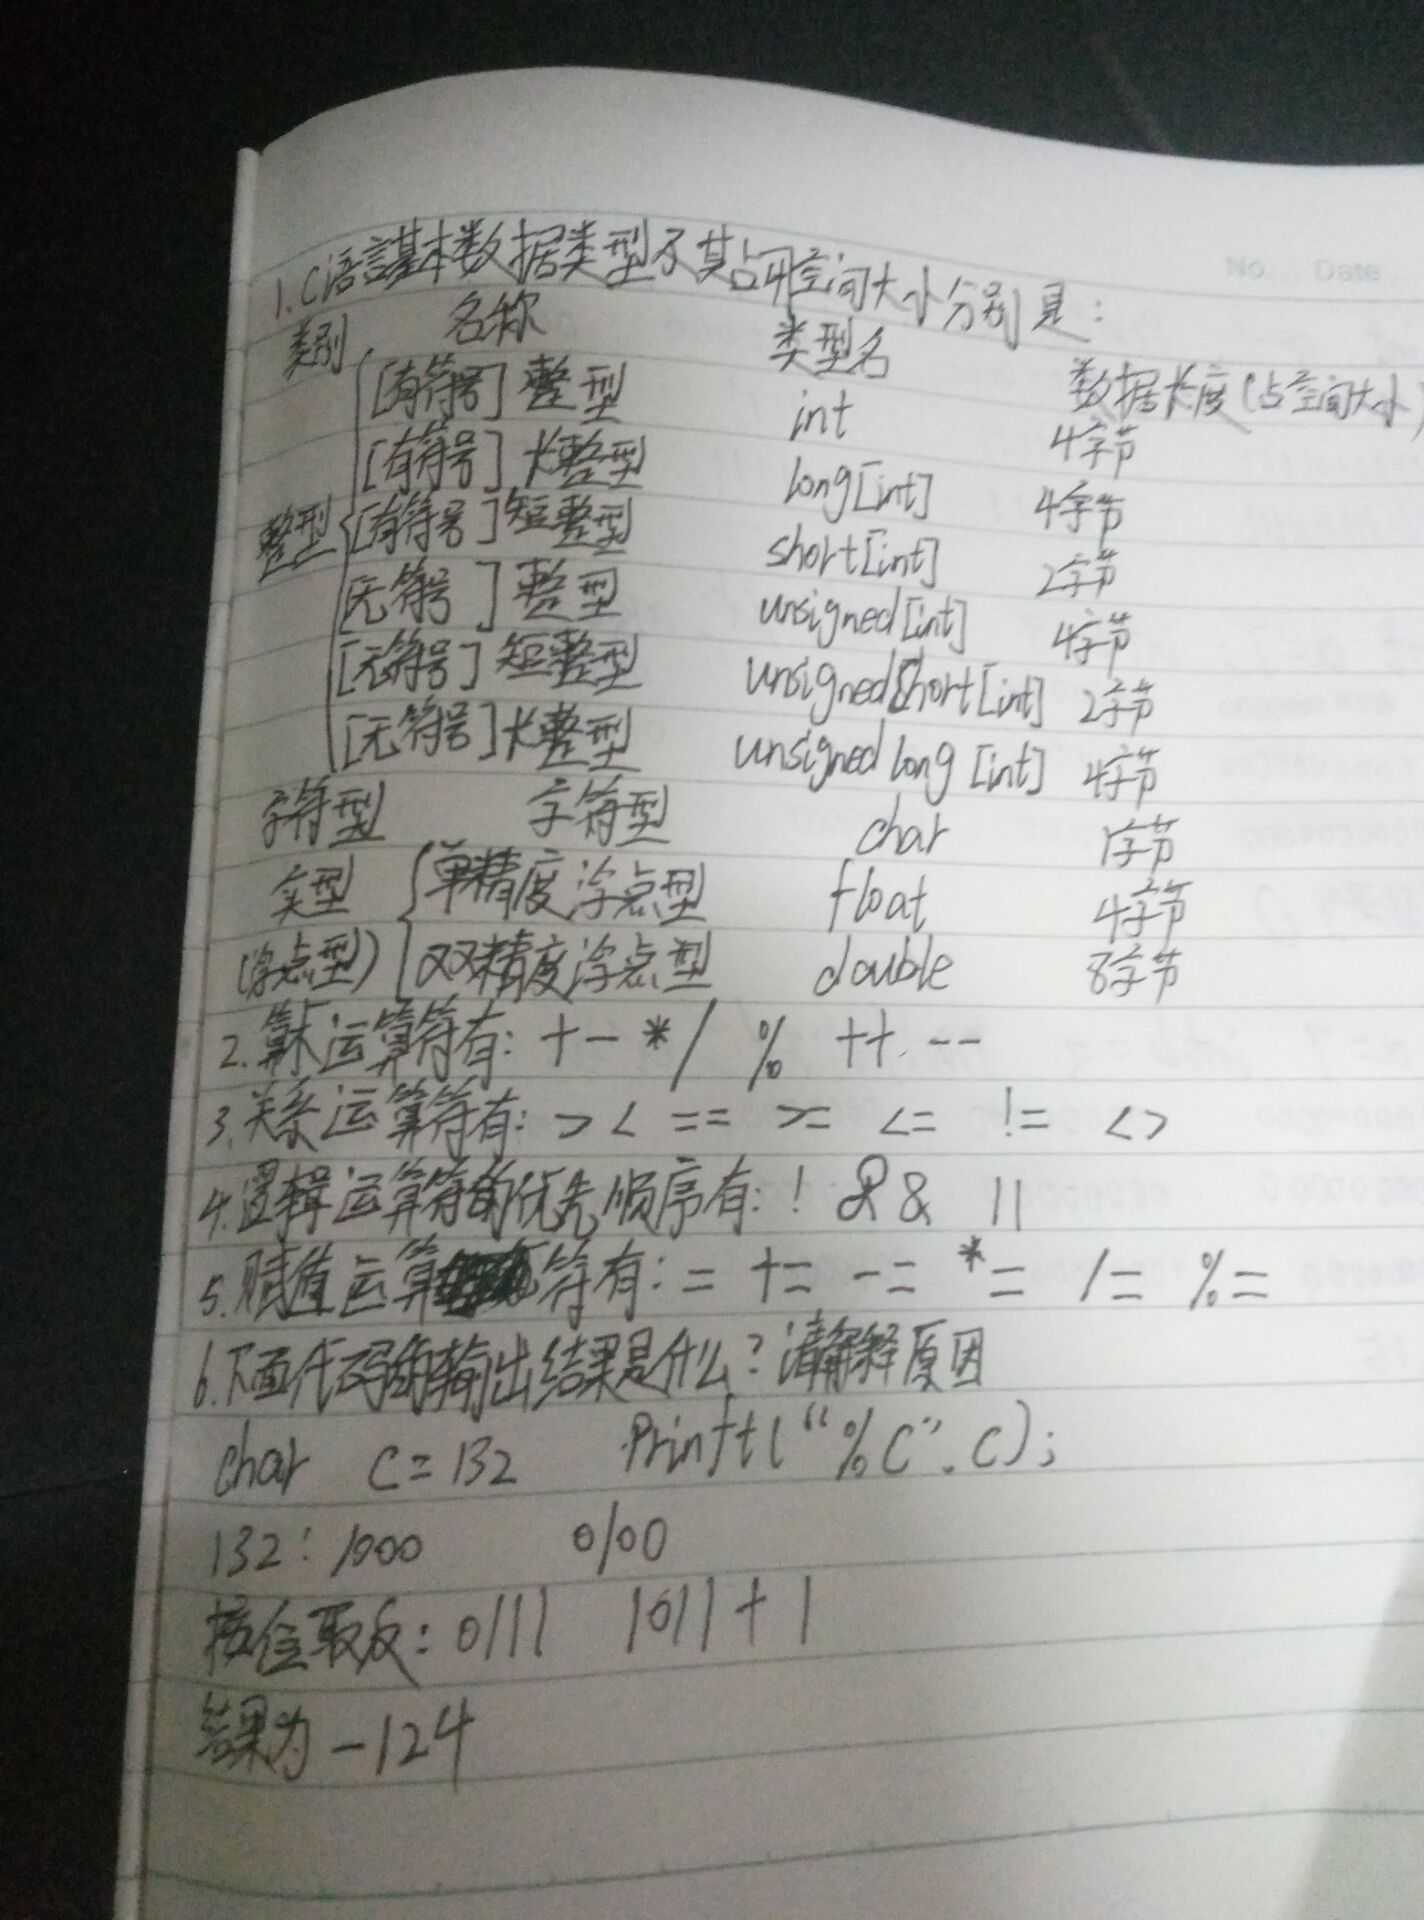 No. Date
1. C语言基本数据类型及其占用空间大小分别是:
类别 名称 类型名 数据长度(占空间大小)
[有符号] 整型 int 4字节
[有符号] 长整型 long[int] 4字节
整型 [有符号] 短整型 short[int] 2字节
[无符号] 整型 unsigned[int] 4字节
[无符号] 短整型 unsigned short[int] 2字节
[无符号] 长整型 unsigned long [int] 4字节
字符型 字符型 char 1字节
实型 单精度浮点型 float 4字节
(浮点型) 双精度浮点型 double 8字节
2. 算术运算符有: + - * / % ++ --
3. 关系运算符有: > < == >= <= != <>
4. 逻辑运算符的优先顺序有: ! && ||
5. 赋值运算符有: = += -= *= /= %=
6. 下面代码的输出结果是什么?请解释原因
char c=132 Printf("%C".C);
132: 1000 0100
按位取反: 0111 1011+1
结果为-124